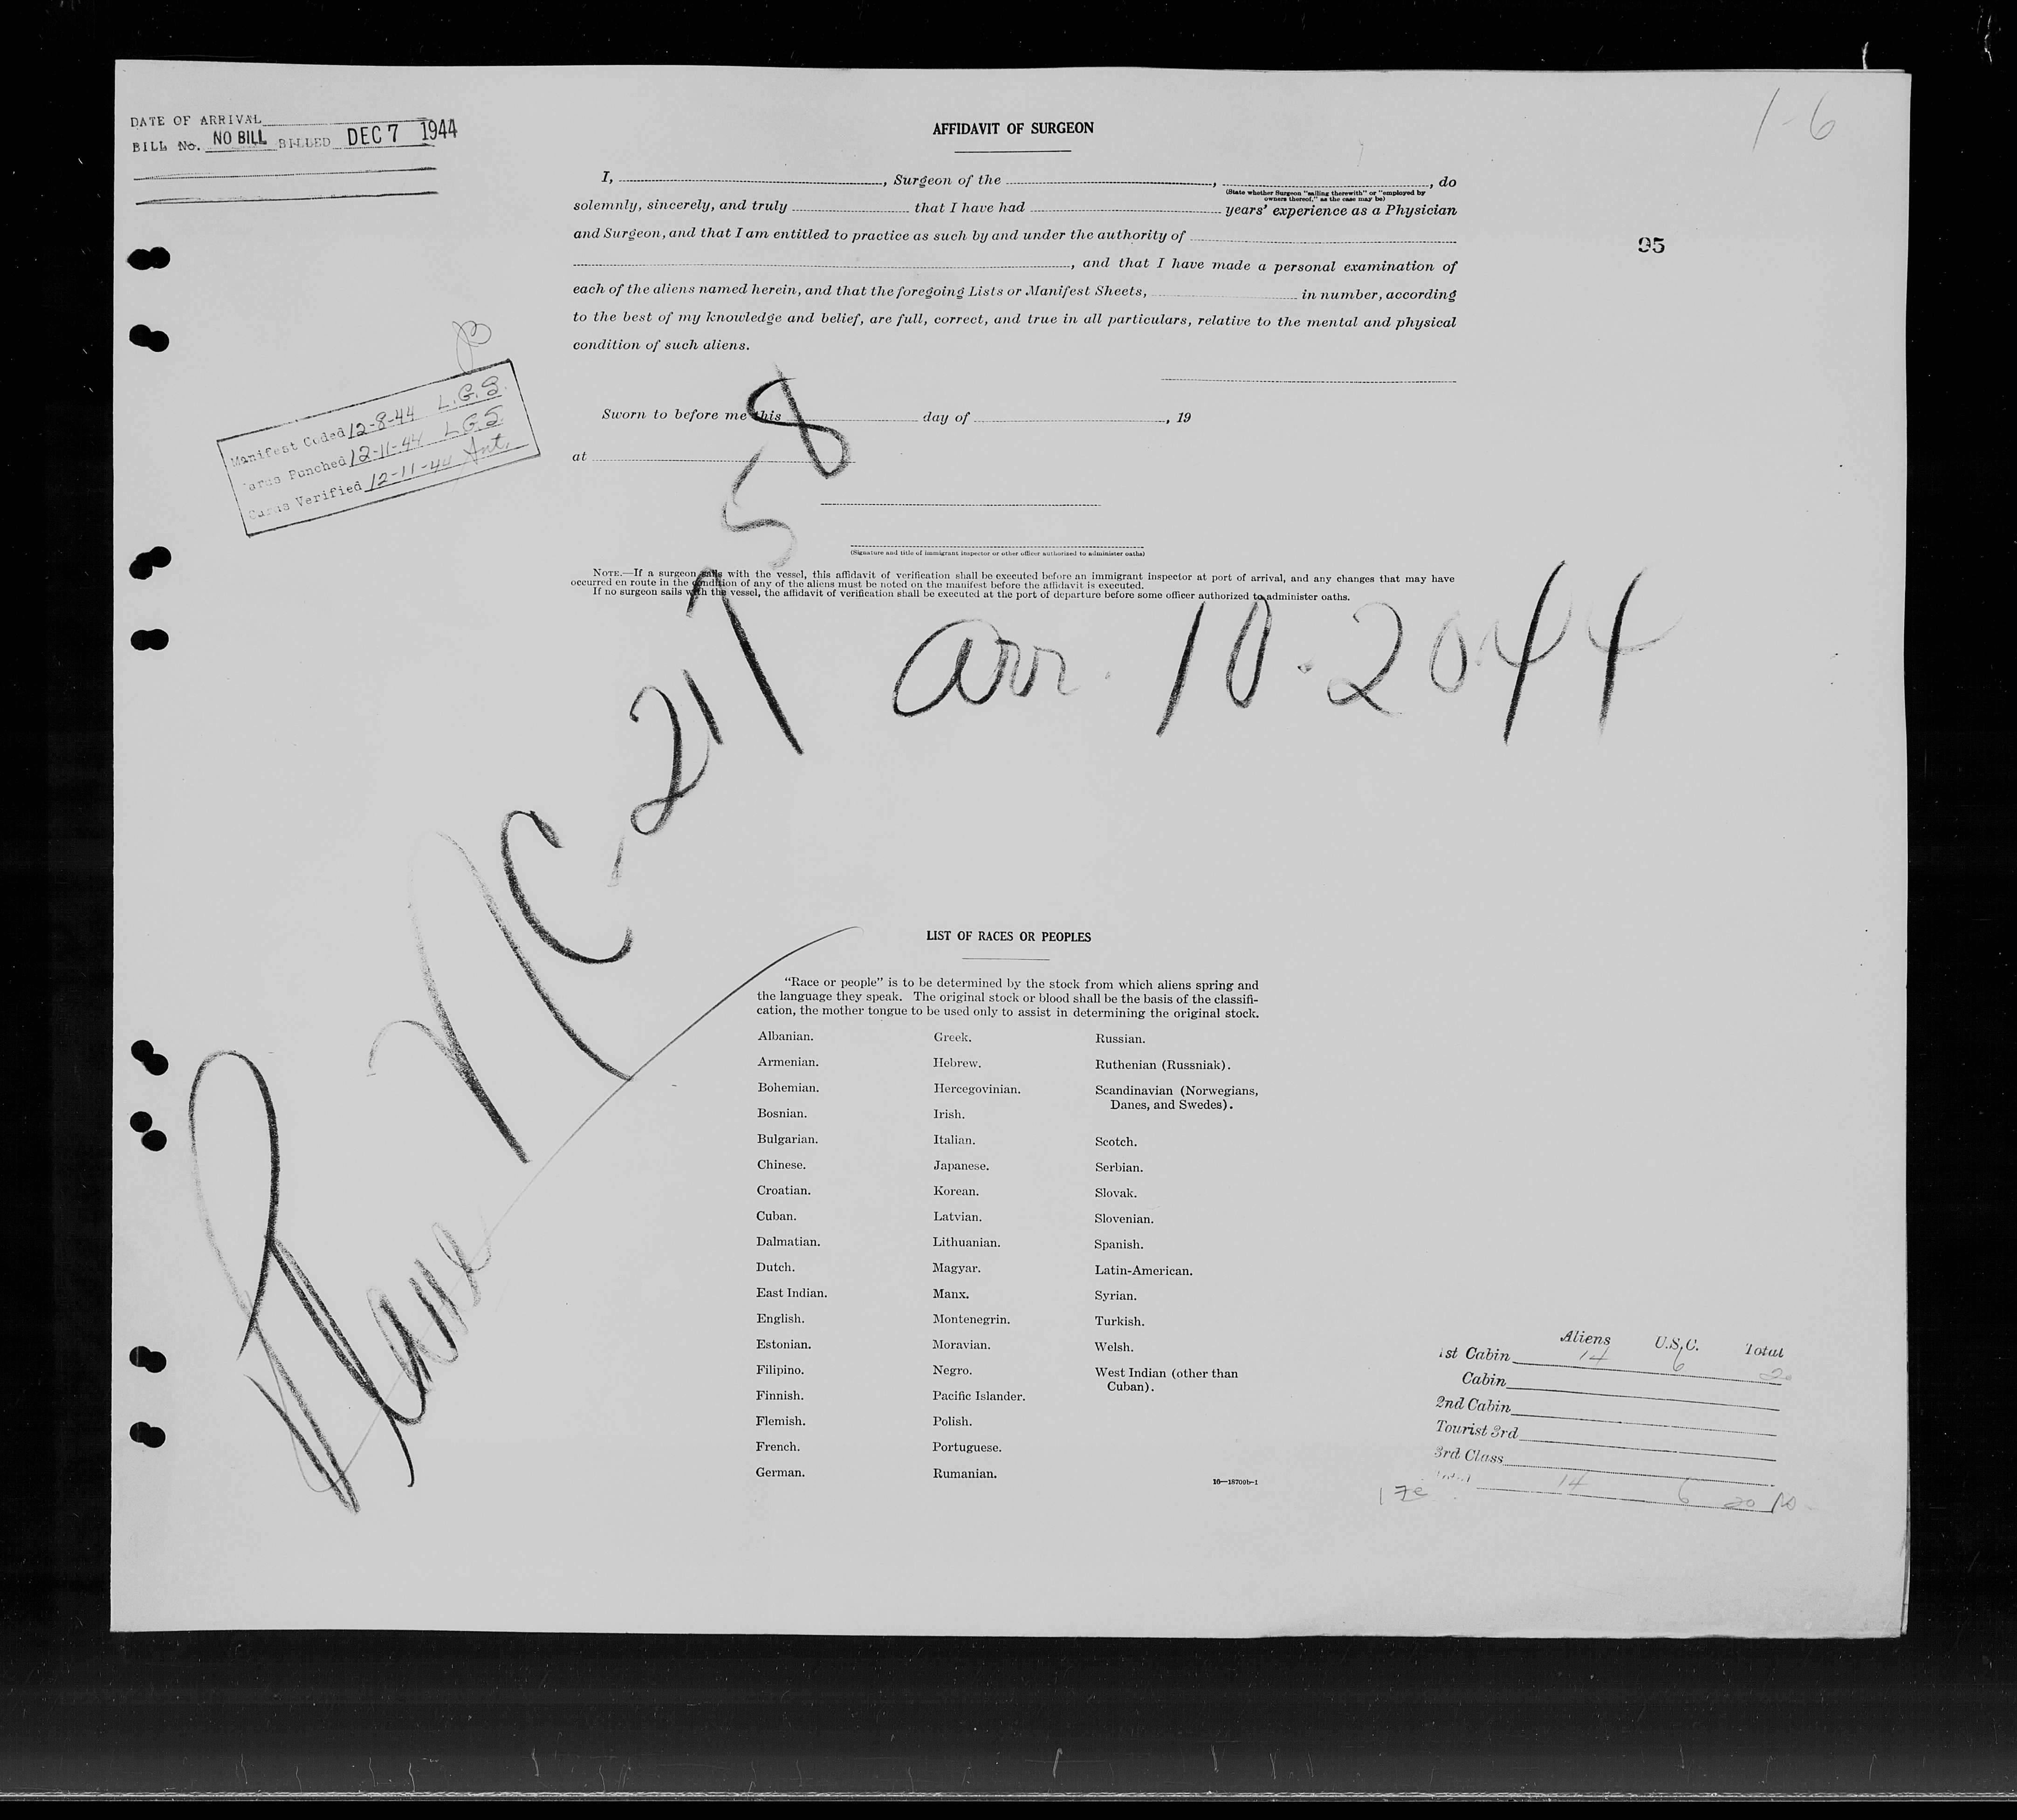 DATE OF ARRIVAL
BILL No. NO BILL BILLED DEC 7 1944
1-6
95
AFFIDAVIT OF SURGEON
I, , Surgeon of the , , do
(State whether Surgeon "sailing therewith" or "employed by owners thereof," as the case may be)
solemnly, sincerely, and truly that I have had years' experience as a Physician
and Surgeon, and that I am entitled to practice as such by and under the authority of
, and that I have made a personal examination of
each of the aliens named herein, and that the foregoing Lists or Manifest Sheets, in number, according
to the best of my knowledge and belief, are full, correct, and true in all particulars, relative to the mental and physical
condition of such aliens.
Manifest Coded 12-8-44 L.G.S.
Cards Punched 12-11-44 L.G.S.
Cards Verified 12-11-44 Ant.
Sworn to before me this day of , 19
at
(Signature and title of immigrant inspector or other officer authorized to administer oaths)
NOTE.—If a surgeon sails with the vessel, this affidavit of verification shall be executed before an immigrant inspector at port of arrival, and any changes that may have
occurred en route in the condition of any of the aliens must be noted on the manifest before the affidavit is executed.
If no surgeon sails with the vessel, the affidavit of verification shall be executed at the port of departure before some officer authorized to administer oaths.
Plane NC-21758
arr. 10-20-44
LIST OF RACES OR PEOPLES
"Race or people" is to be determined by the stock from which aliens spring and
the language they speak. The original stock or blood shall be the basis of the classifi-
cation, the mother tongue to be used only to assist in determining the original stock.
Albanian.
Armenian.
Bohemian.
Bosnian.
Bulgarian.
Chinese.
Croatian.
Cuban.
Dalmatian.
Dutch.
East Indian.
English.
Estonian.
Filipino.
Finnish.
Flemish.
French.
German.
Greek.
Hebrew.
Hercegovinian.
Irish.
Italian.
Japanese.
Korean.
Latvian.
Lithuanian.
Magyar.
Manx.
Montenegrin.
Moravian.
Negro.
Pacific Islander.
Polish.
Portuguese.
Rumanian.
Russian.
Ruthenian (Russniak).
Scandinavian (Norwegians,
Danes, and Swedes).
Scotch.
Serbian.
Slovak.
Slovenian.
Spanish.
Latin-American.
Syrian.
Turkish.
Welsh.
West Indian (other than
Cuban).
16—18700b-1
Aliens U.S.C. Total
1st Cabin 14 6 20
Cabin
2nd Cabin
Tourist 3rd
3rd Class
Total 14 6 20